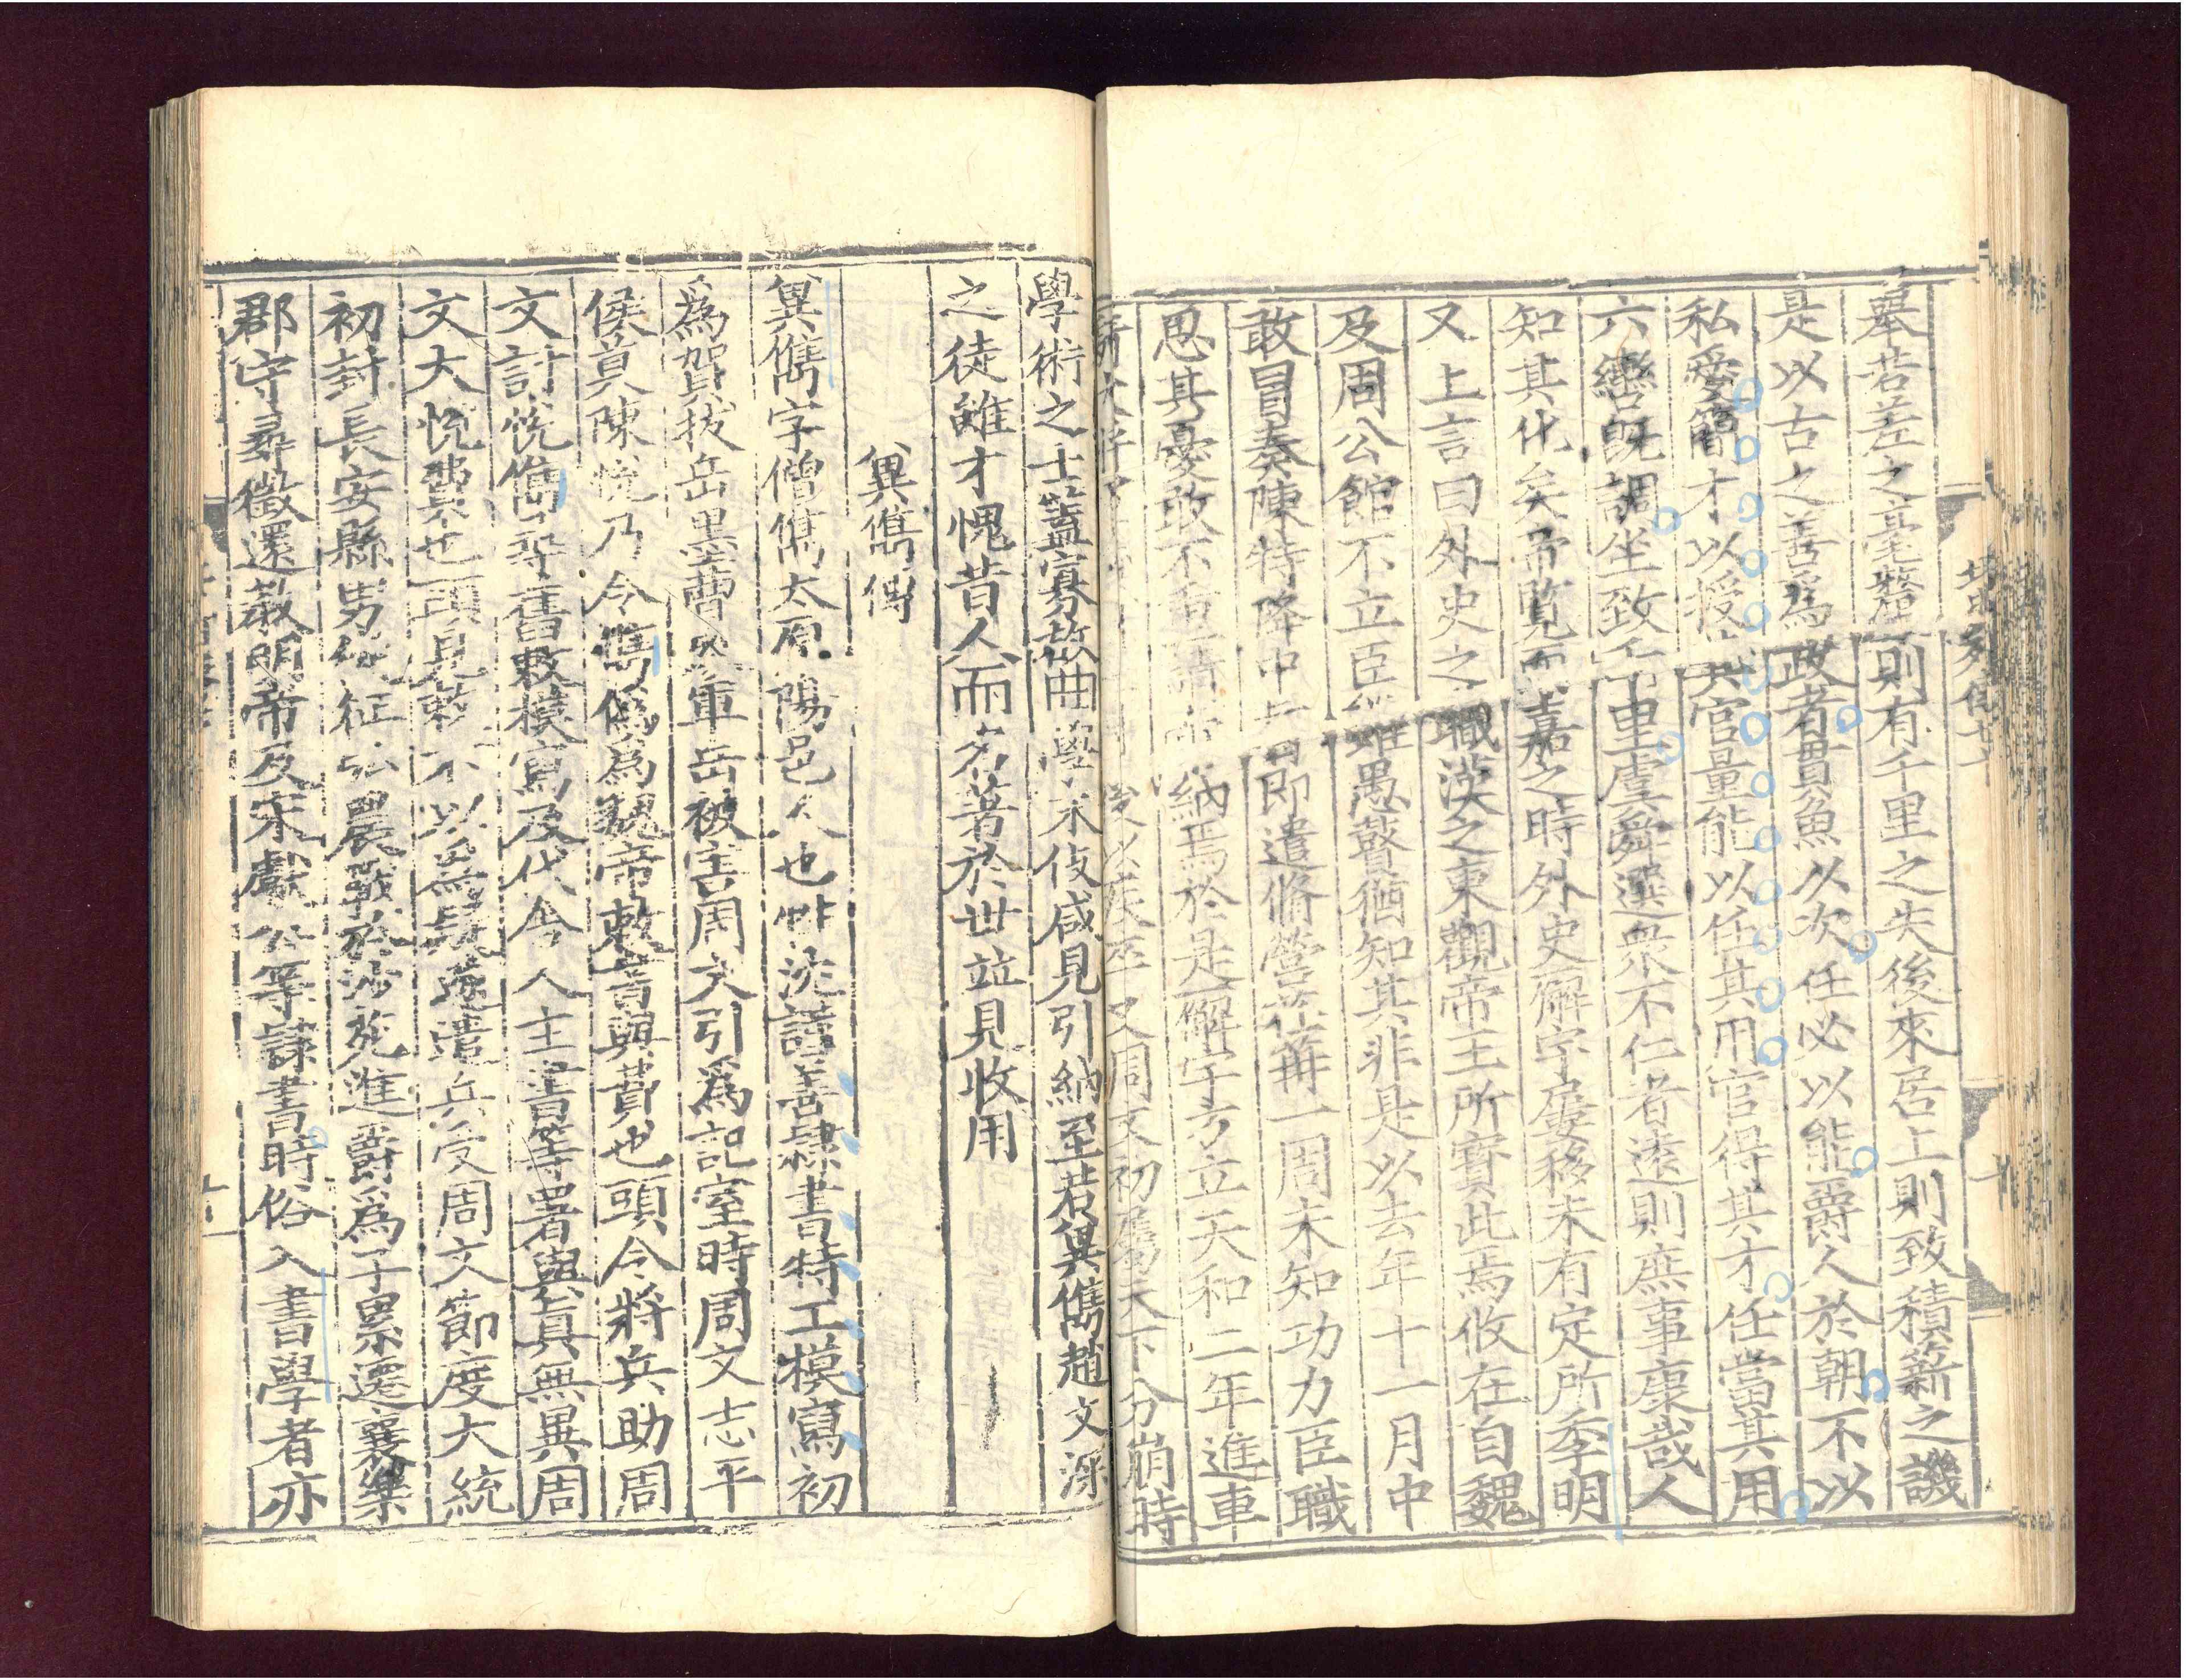 舉若差之毫釐則有千里之失後來居上則致積薪之譏
是以古之善爲政者貫魚以次任必以能爵人於朝不以
私愛簡才以授其官量能以任其用官得其才任當其用
六轡旣調坐致千里虞舜選衆不仁者遠則庶事康哉人
知其化矣帝覽而嘉之時外史廨宇屢移未有定所季明
又上言曰外史之職漢之東觀帝王所寶此焉攸在自魏
及周公館不立臣雖愚瞽猶知其非是以去年十一月中
敢冒奏陳特降中旨即遣脩營荏苒一周未知功力臣職
思其憂敢不重請帝納焉於是廨宇方立天和二年進車
後以疾卒又周文初屬天下分崩時
學術之士蓋寡故曲學末伎咸見引納至若兾儁趙文深
之徒雖才愧昔人而名著於世竝見收用
兾儁傳
兾儁字僧儁太原陽邑人也性沈謹善隷書特工模寫初
爲賀拔岳墨曹參軍岳被害周文引爲記室時周文志平
侯莫陳悅乃令儁僞爲魏帝敕書與費也頭令將兵助周
文討悅儁尋舊敕模寫及代舍人主書等署與真無異周
文大悅費也頭見敕不以爲疑遂遣兵受周文節度大統
初封長安縣男從征弘農戰於沙苑進爵爲子累遷襄樂
郡守尋徵還敎明帝及宋獻公等隷書時俗入書學者亦